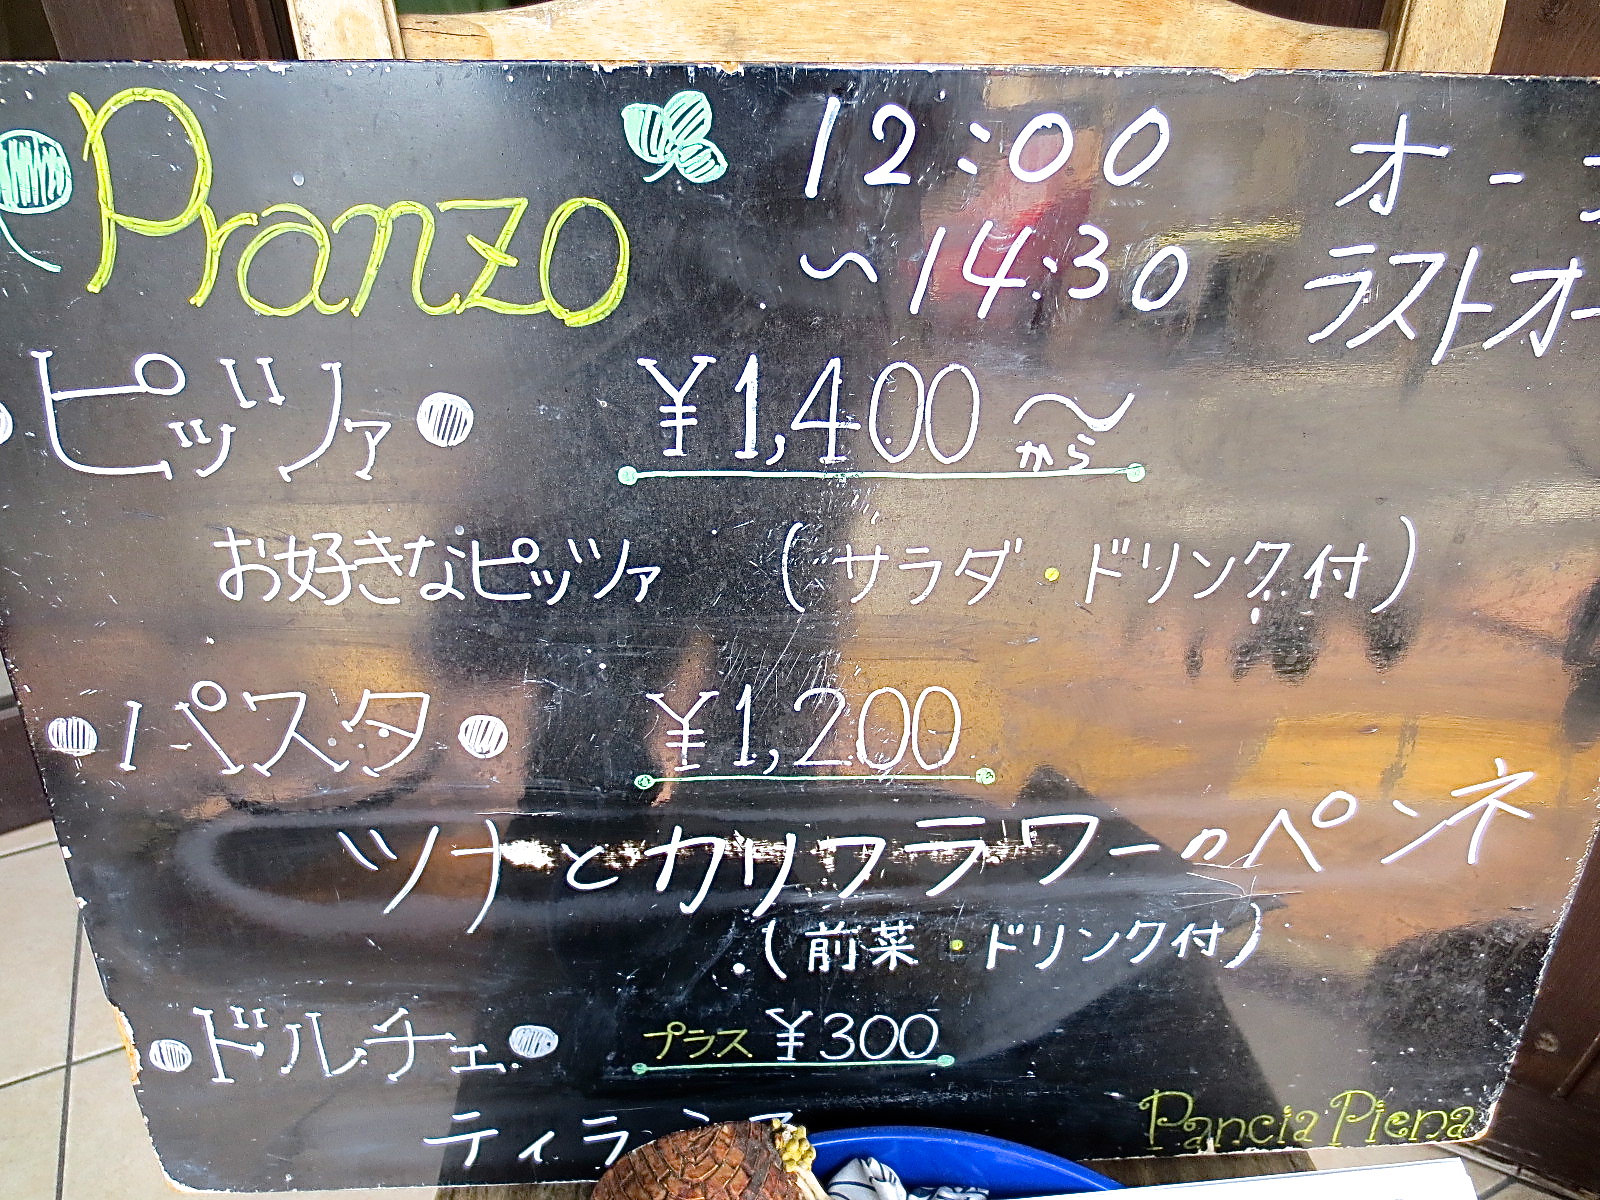 Pranzo
12:00 オー
~14:30 ラストオー
ピッツァ ¥1,400~
から
お好きなピッツァ (サラダ・ドリンク付)
パスタ ¥1,200
ツナとカリフラワーのペンネ
(前菜・ドリンク付)
ドルチェ プラス ¥300
ティラ
Pancia Piena